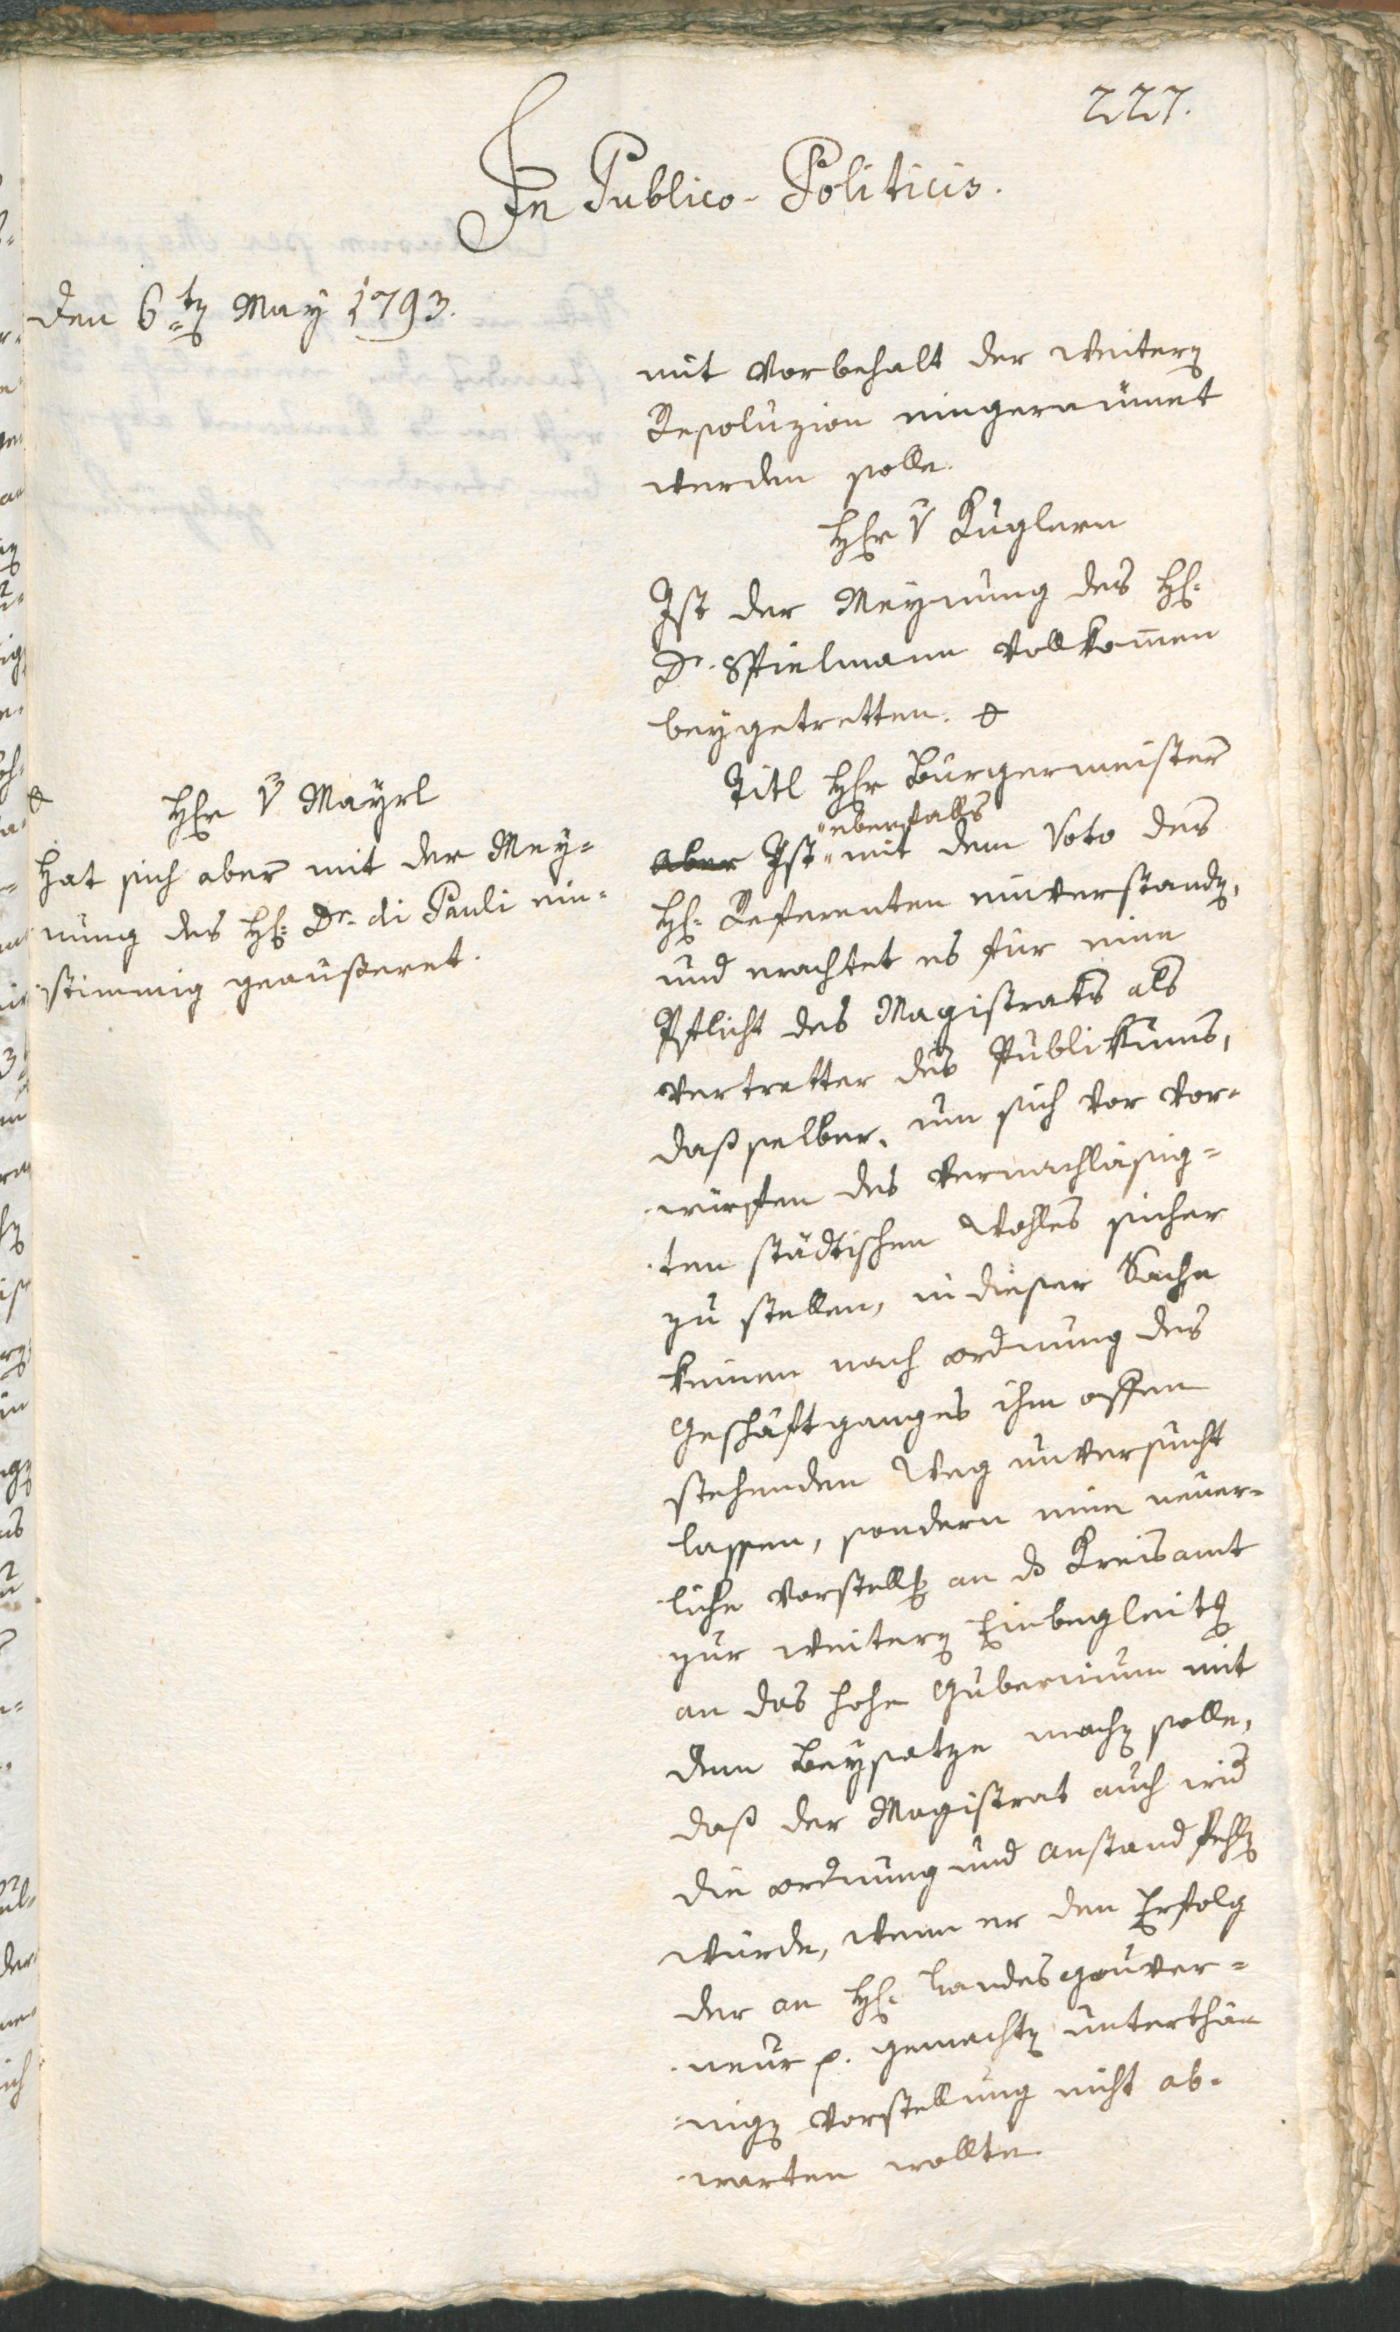 227.
In Publico-Politicis.
den 6ten May 1793.
mit Vorbehalt der weitern
Resoluzion eingeraumet
werden solle.
Hr v Kuglern
Ist der Meynung des H:
Dr. Spielmann vollkommen
beygetretten.
Titl Hr Burgermeister
aber Ist ebenfalls mit dem Voto des
H: Referenten einverstanden,
und erachtet es für eine
Pflicht des Magistrats als
Vertretter des Publikums,
daß selber, um sich vor Vor-
würfen des vernachläsig-
ten städtischen Wohles sicher
zu stellen, in dieser Sache
keinen nach Ordnung des
Geschäftganges ihm offen
stehenden Weg unversucht
lassen, sondern eine neuer-
liche Vorstellung an das Kreisamt
zur weitern Einbegleitung
an das hohe Gubernium mit
dem Beysatze machen solle,
daß der Magistrat auch wid
die Ordnung und Anstand fehlen
würde, wenn er den Erfolg
der an H: Landesgouver-
neur p. gemachten unterthä-
nigen Vorstellung nicht ab-
warten wollte
Hr v Mayrl
Hat sich aber mit der Mey-
nung des H: Dr. di Pauli ein-
stimmig geäusseret.